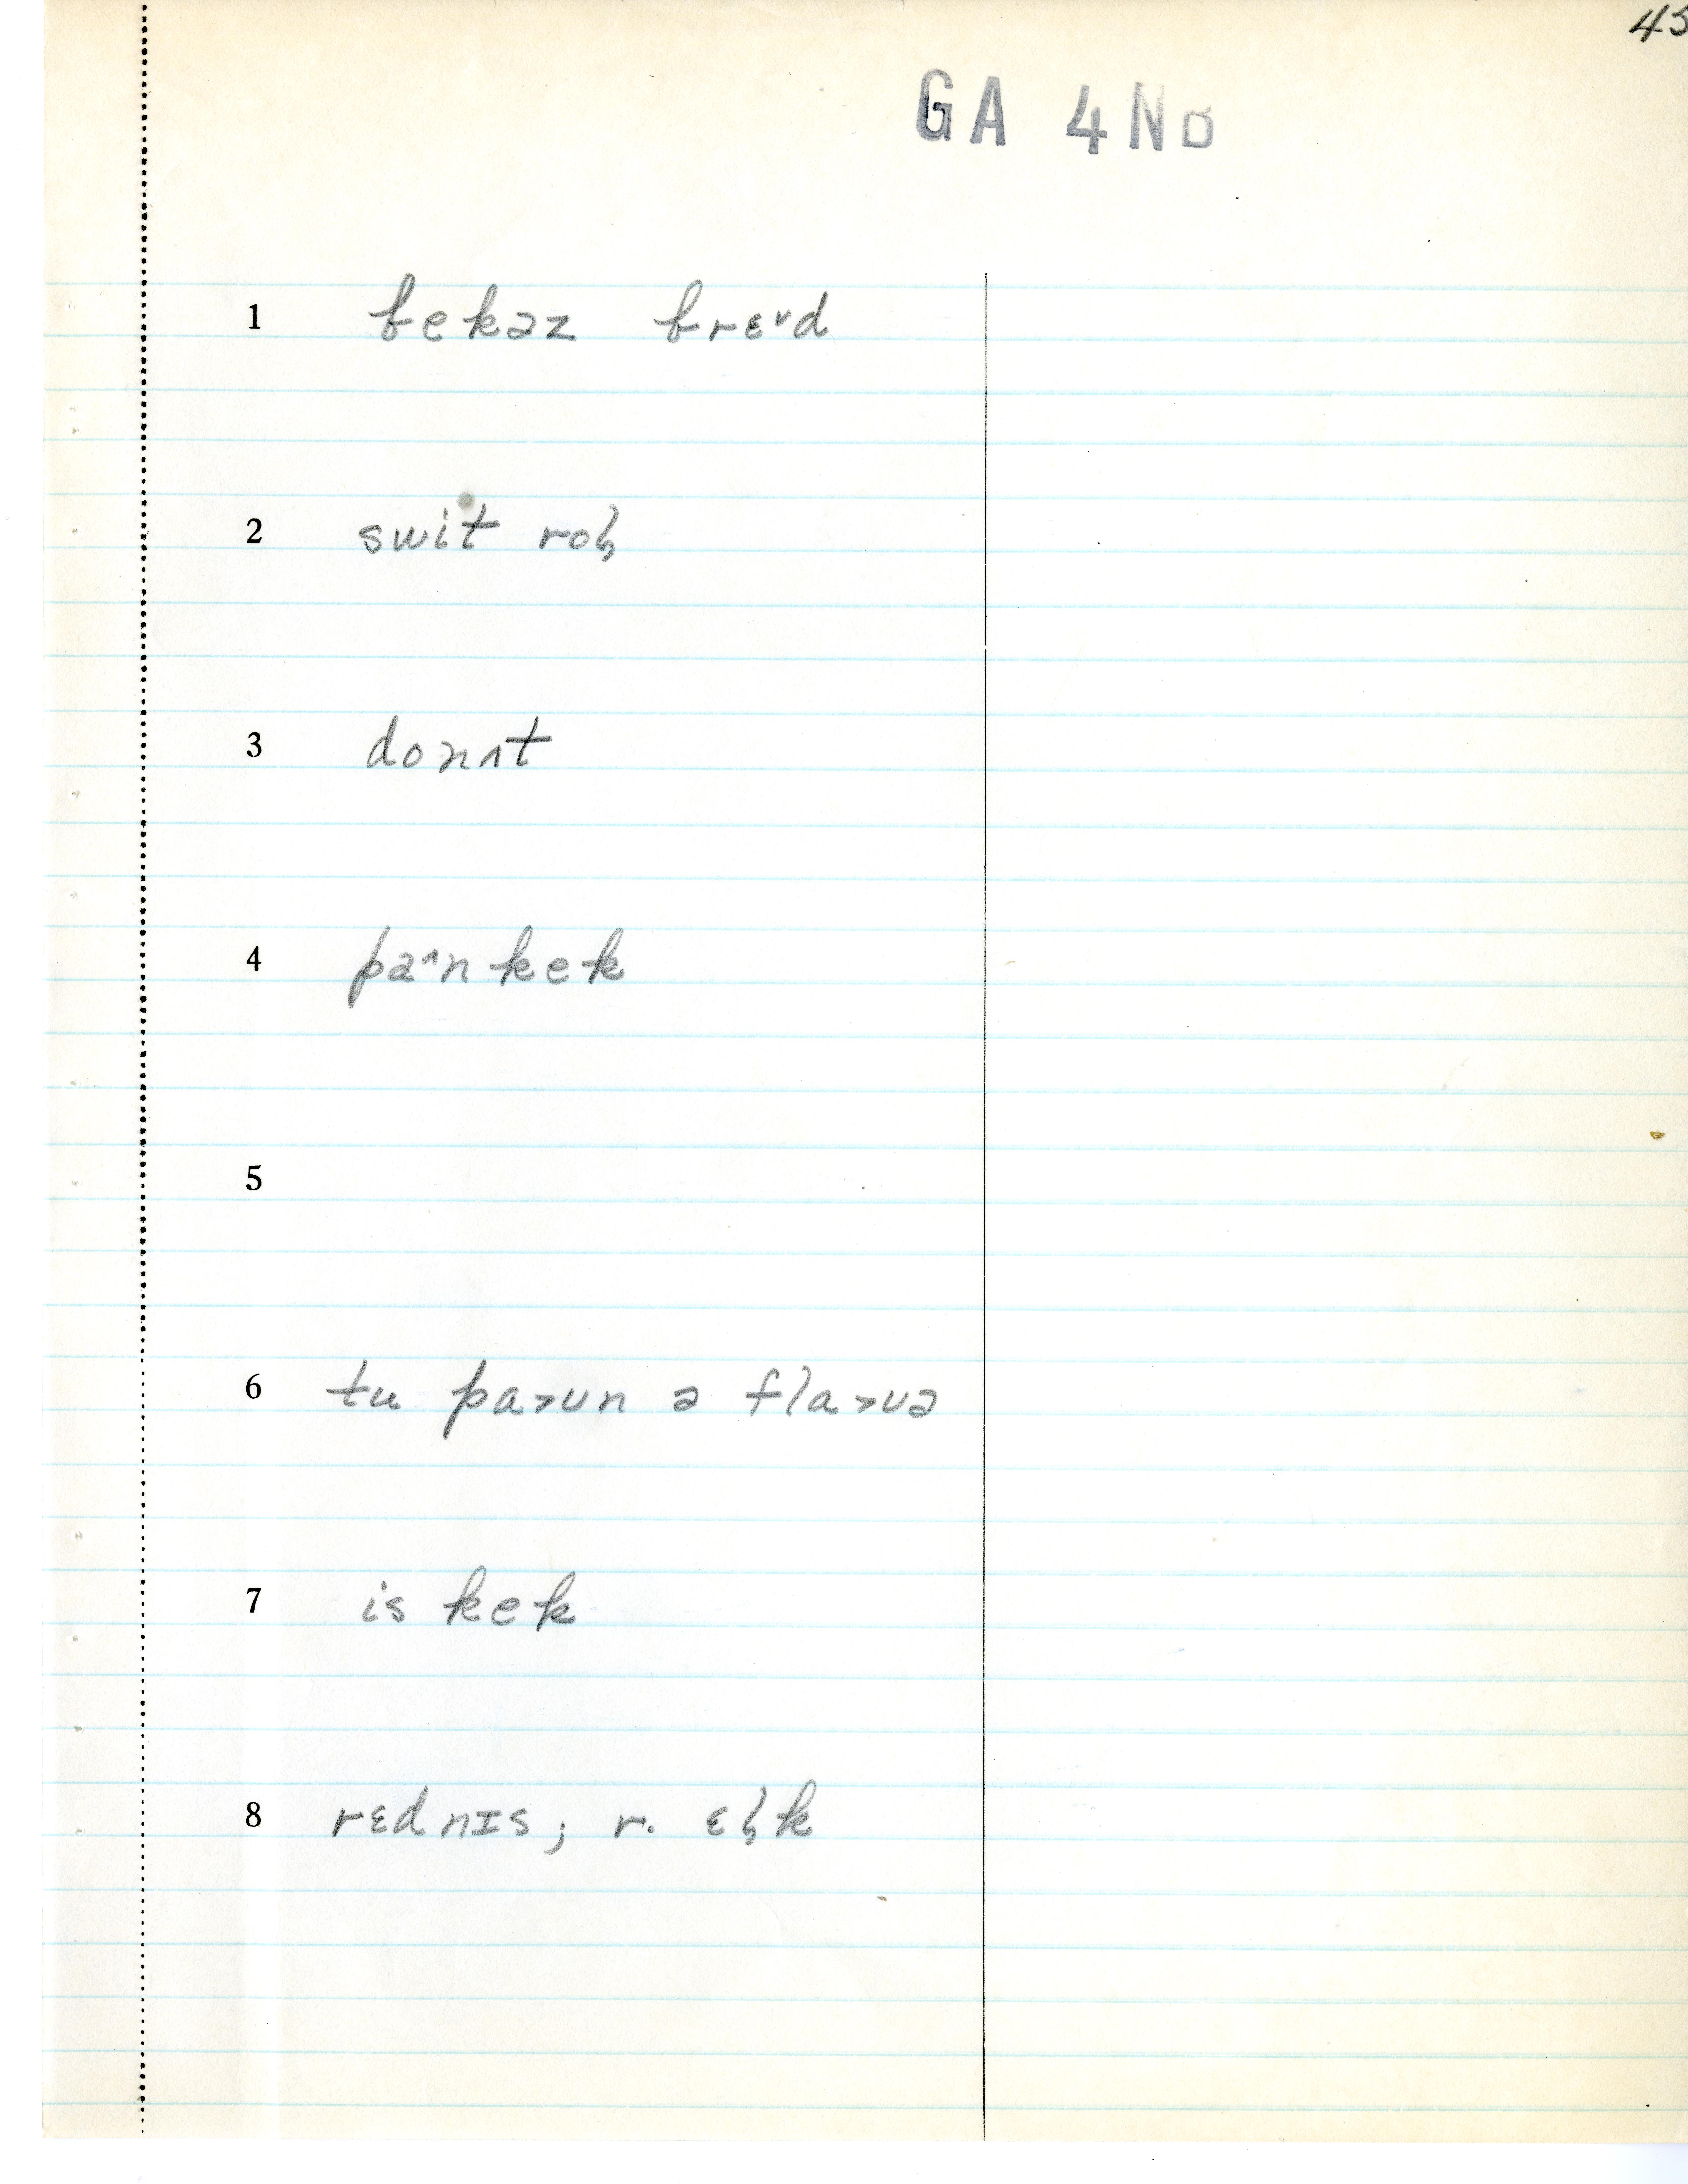 45
GA 4NB
1 bekəz brɛ˅d
2 swit rolz
3 donʌt
4 pa^nkek
5
6 tu pa>un ə fla>uə
7 is kek
8 rɛdnɪs; r. ɛɫk